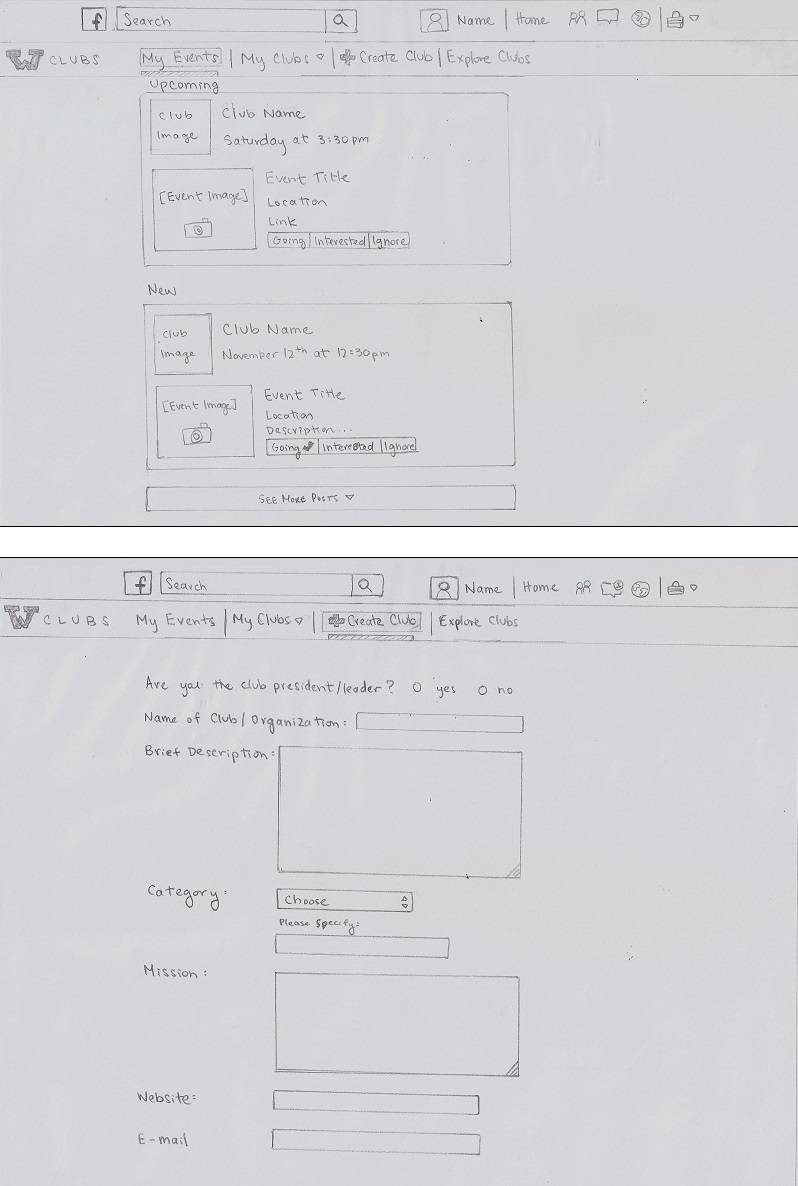 f Search Name | Home
W CLUBS My Events | My Clubs | Create Club | Explore Clubs
Upcoming
Club Image
Club Name
Saturday at 3:30pm
[Event Image]
Event Title
Location
Link
Going Interested Ignore
New
Club Image
Club Name
November 12th at 12:30pm
[Event Image]
Event Title
Location
Description...
Going Interested Ignore
See More Posts
f Search Name | Home
W CLUBS My Events | My Clubs | Create Club | Explore Clubs
Are you the club president/leader? yes no
Name of Club/Organization:
Brief Description:
Category: Choose
Please Specify:
Mission:
Website:
E-mail